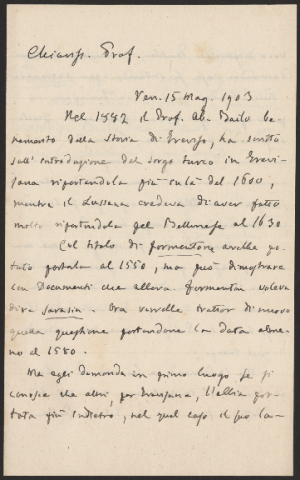 Chiariss. Prof.
Ven. 15 Mag. 1903
Nel 1882 il Prof. Ab. Bailo be
nemerito della storia di Treviso, ha scritto
sull' introduzione del sorgo turco in Trevi
giana riportandola più su là del 1600,
mentre il Lussana credeva di aver fatto
molto riportandola pel Bellunese al 1630
Col titolo di formentone avrebbe po
tuto portala al 1550, ma può dimostrare
con Documenti che allora formenton voleva
dire sarasin. Ora vorrebbe trattar di nuovo
quella questione portandone la data alme
no al 1580.
Ma egli domanda in primo luogo se si
conosce che altri, per Trevigiana, l'abbia por
tata più indietro, nel qual caso il suo la-